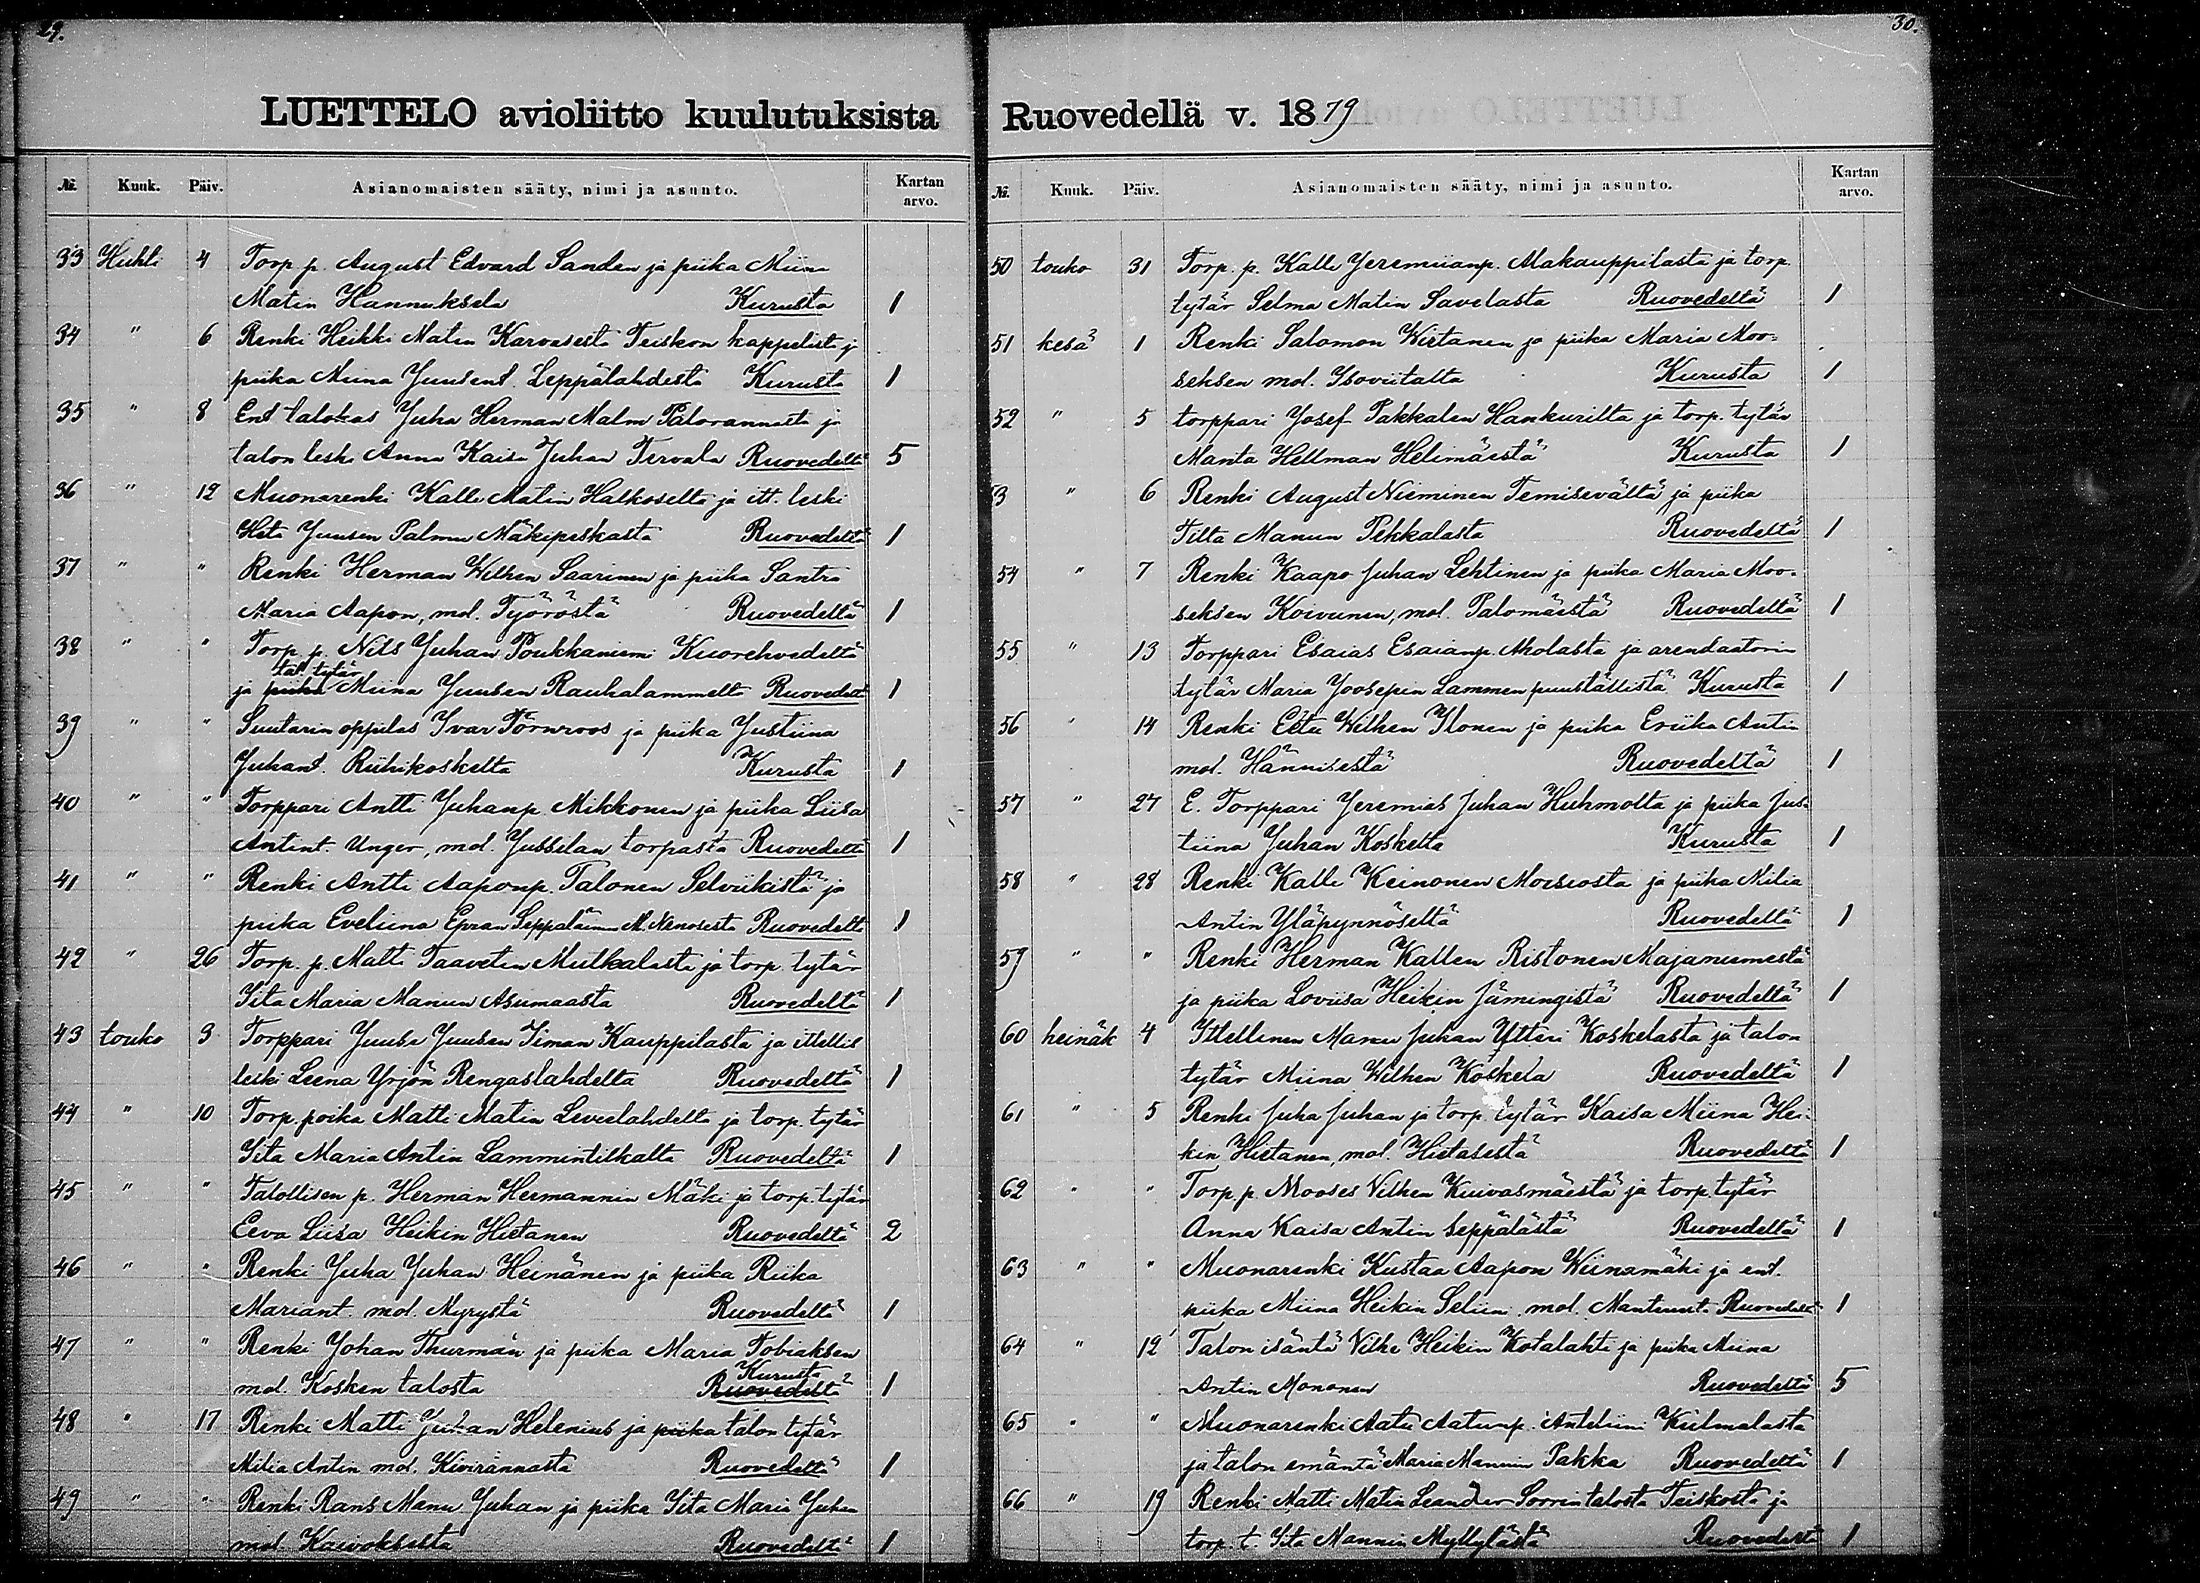 29.
LUETTELO avioliitto kuulutuksista
№ Kuuk. Päiv. Asianomaisten sääty, nimi ja asunto. Kartan arvo.
33 Huhti 4 Torp p. August Edvard Sanden ja piika Miina
Matin Hannuksela Kurusta 1
34 " 6 Renki Heikki Matin Karvasesta Teiskon kappelista j
piika Miina Juusent. Leppälahdesta Kurusta 1
35 " 8 Ent talokas Juha Herman Malm Palorannasta ja
talon leski Anna Kaisa Juhan Tervala Ruovedeltä 5
36 " 12 Muonarenki Kalle Matin Halkoselta ja itt. leski
Heta Juusen Palmu Mäkipeskasta Ruovedeltä 1
37 " " Renki Herman Wilhen Saarinen ja piika Santra
Maria Aapon, mol. Työröstä Ruovedeltä 1
38 " " Torp p. Nils Juhan Poukkaniemi Kuorehvedeltä
tal. tytär
ja piika Miina Juusen Rauhalammelta Ruovedelt 1
39 " " Suutarin oppilas Ivar Törnroos ja piika Justiina
Juhant. Riihikoskelta Kurusta 1
40 " " Torppari Antti Juhanp. Mikkonen ja piika Liisa
Antint. Unger, mol. Jussilan torpasta Ruovedeltä 1
41 " " Renki Antti Aaponp. Talonen Selviikistä ja
piika Eveliina Epran Seppäläinen M. Nenosesta Ruovedelt 1
42 " 26 Torp. p. Matti Taavetin Mulkalasta ja torp. tytär
Iita Maria Manun Asumaasta Ruovedeltä 1
43 touko 3 Torppari Juusa Juusen Iiman Kauppilasta ja itellis
leski Leena Yrjön Rengaslahdelta Ruovedeltä 1
44 " 10 Torp. poika Matti Matin Leveelahdelta ja torp. tytär
Iita Maria Antin Lammintilkalta Ruovedeltä 1
45 " " Talollisen p. Herman Hermannin Mäki ja torp. tytär
Eeva Liisa Heikin Hietanen Ruovedeltä 2
46 " " Renki Juha Juhan Heinänen ja piika Riika
Mariant. mol. Myrystä Ruovedeltä 1
47 " " Renki Johan Thurman ja piika Maria Tobiaksen
Kurusta
mol. Kosken talosta Ruovedeltä 1
48 " 17 Renki Matti Juhan Helenius ja piika talon tytär
Milia Antin mol. Kivirannasta Ruovedeltä 1
49 " " Renki Rans Manu Juhan ja piika Iita Maria Juhan
mol. Kaivokselta Ruovedelt 1
30.
Ruovedellä v. 1879
№ Kuuk. Päiv. Asianomaisten sääty, nimi ja asunto. Kartan arvo.
50 touko 31 Torp. p. Kalle Jeremiianp. Alakauppilasta ja torp.
tytär Selma Matin Savelasta Ruovedeltä 1
51 kesä 1 Renki Salomon Wirtanen ja piika Maria Moo-
seksen mol. Isoviitalta Kurusta 1
52 " 5 torppari Josef Pakkalen Hankurilta ja torp. tytär
Manta Hellman Helimäestä Kurusta 1
53 " 6 Renki August Nieminen Temisevältä ja piika
Tilta Manun Pekkalasta Ruovedeltä 1
54 " 7 Renki Kaapo Juhan Lehtinen ja piika Maria Moo-
seksen Koivunen, mol. Palomäestä Ruovedeltä 1
55 " 13 Torppari Esaias Esaianp. Aholasta ja arendaatorin
tytär Maria Joosepin Lammen puuställistä Kurusta 1
56 " 14 Renki Eetu Wilhen Ilonen ja piika Eriika Antin
mol. Hännisestä Ruovedeltä 1
57 " 27 E. Torppari Jeremias Juhan Huhmolta ja piika Jus-
tiina Juhan Koskelta Kurusta 1
58 " 28 Renki Kalle Keinonen Moisiosta ja piika Milia
Antin Yläpynnöseltä Ruovedeltä 1
59 " " Renki Herman Kallen Ristonen Majaniemestä
ja piika Loviisa Heikin Jämingistä Ruovedeltä 1
60 heinäk 4 Itellinen Manu Juhan Ytteri Koskelasta ja talon
tytär Miina Wilhen Koskela Ruovedeltä 1
61 " 5 Renki Juha Juhan ja torp. tytär Kaisa Miina Hei-
kin Hietanen, mol. Hietasesta Ruovedeltä 1
62 " " Torp. p. Mooses Vilhen Kuivasmäestä ja torp. tytär
Anna Kaisa Antin Seppälästä Ruovedeltä 1
63 " " Muonarenki Kustaa Aapon Wiinamäki ja ent.
piika Miina Heikin Seliin mol. Ruovedelt 1
64 " 12 Talon isäntä Vilhe Heikin Kotalahti ja piika Miina
Antin Mononen Ruovedeltä 5
65 " " Muonarenki Aatu Aatunp. Anteliini Kiilmalasta
ja talon emäntä Maria Manun Pakka Ruovedeltä 1
66 " 19 Renki Matti Matin Leander Sorrin talosta Teiskosta ja
torp. t. Iita Mannin Myllylästä Ruovedestä 1